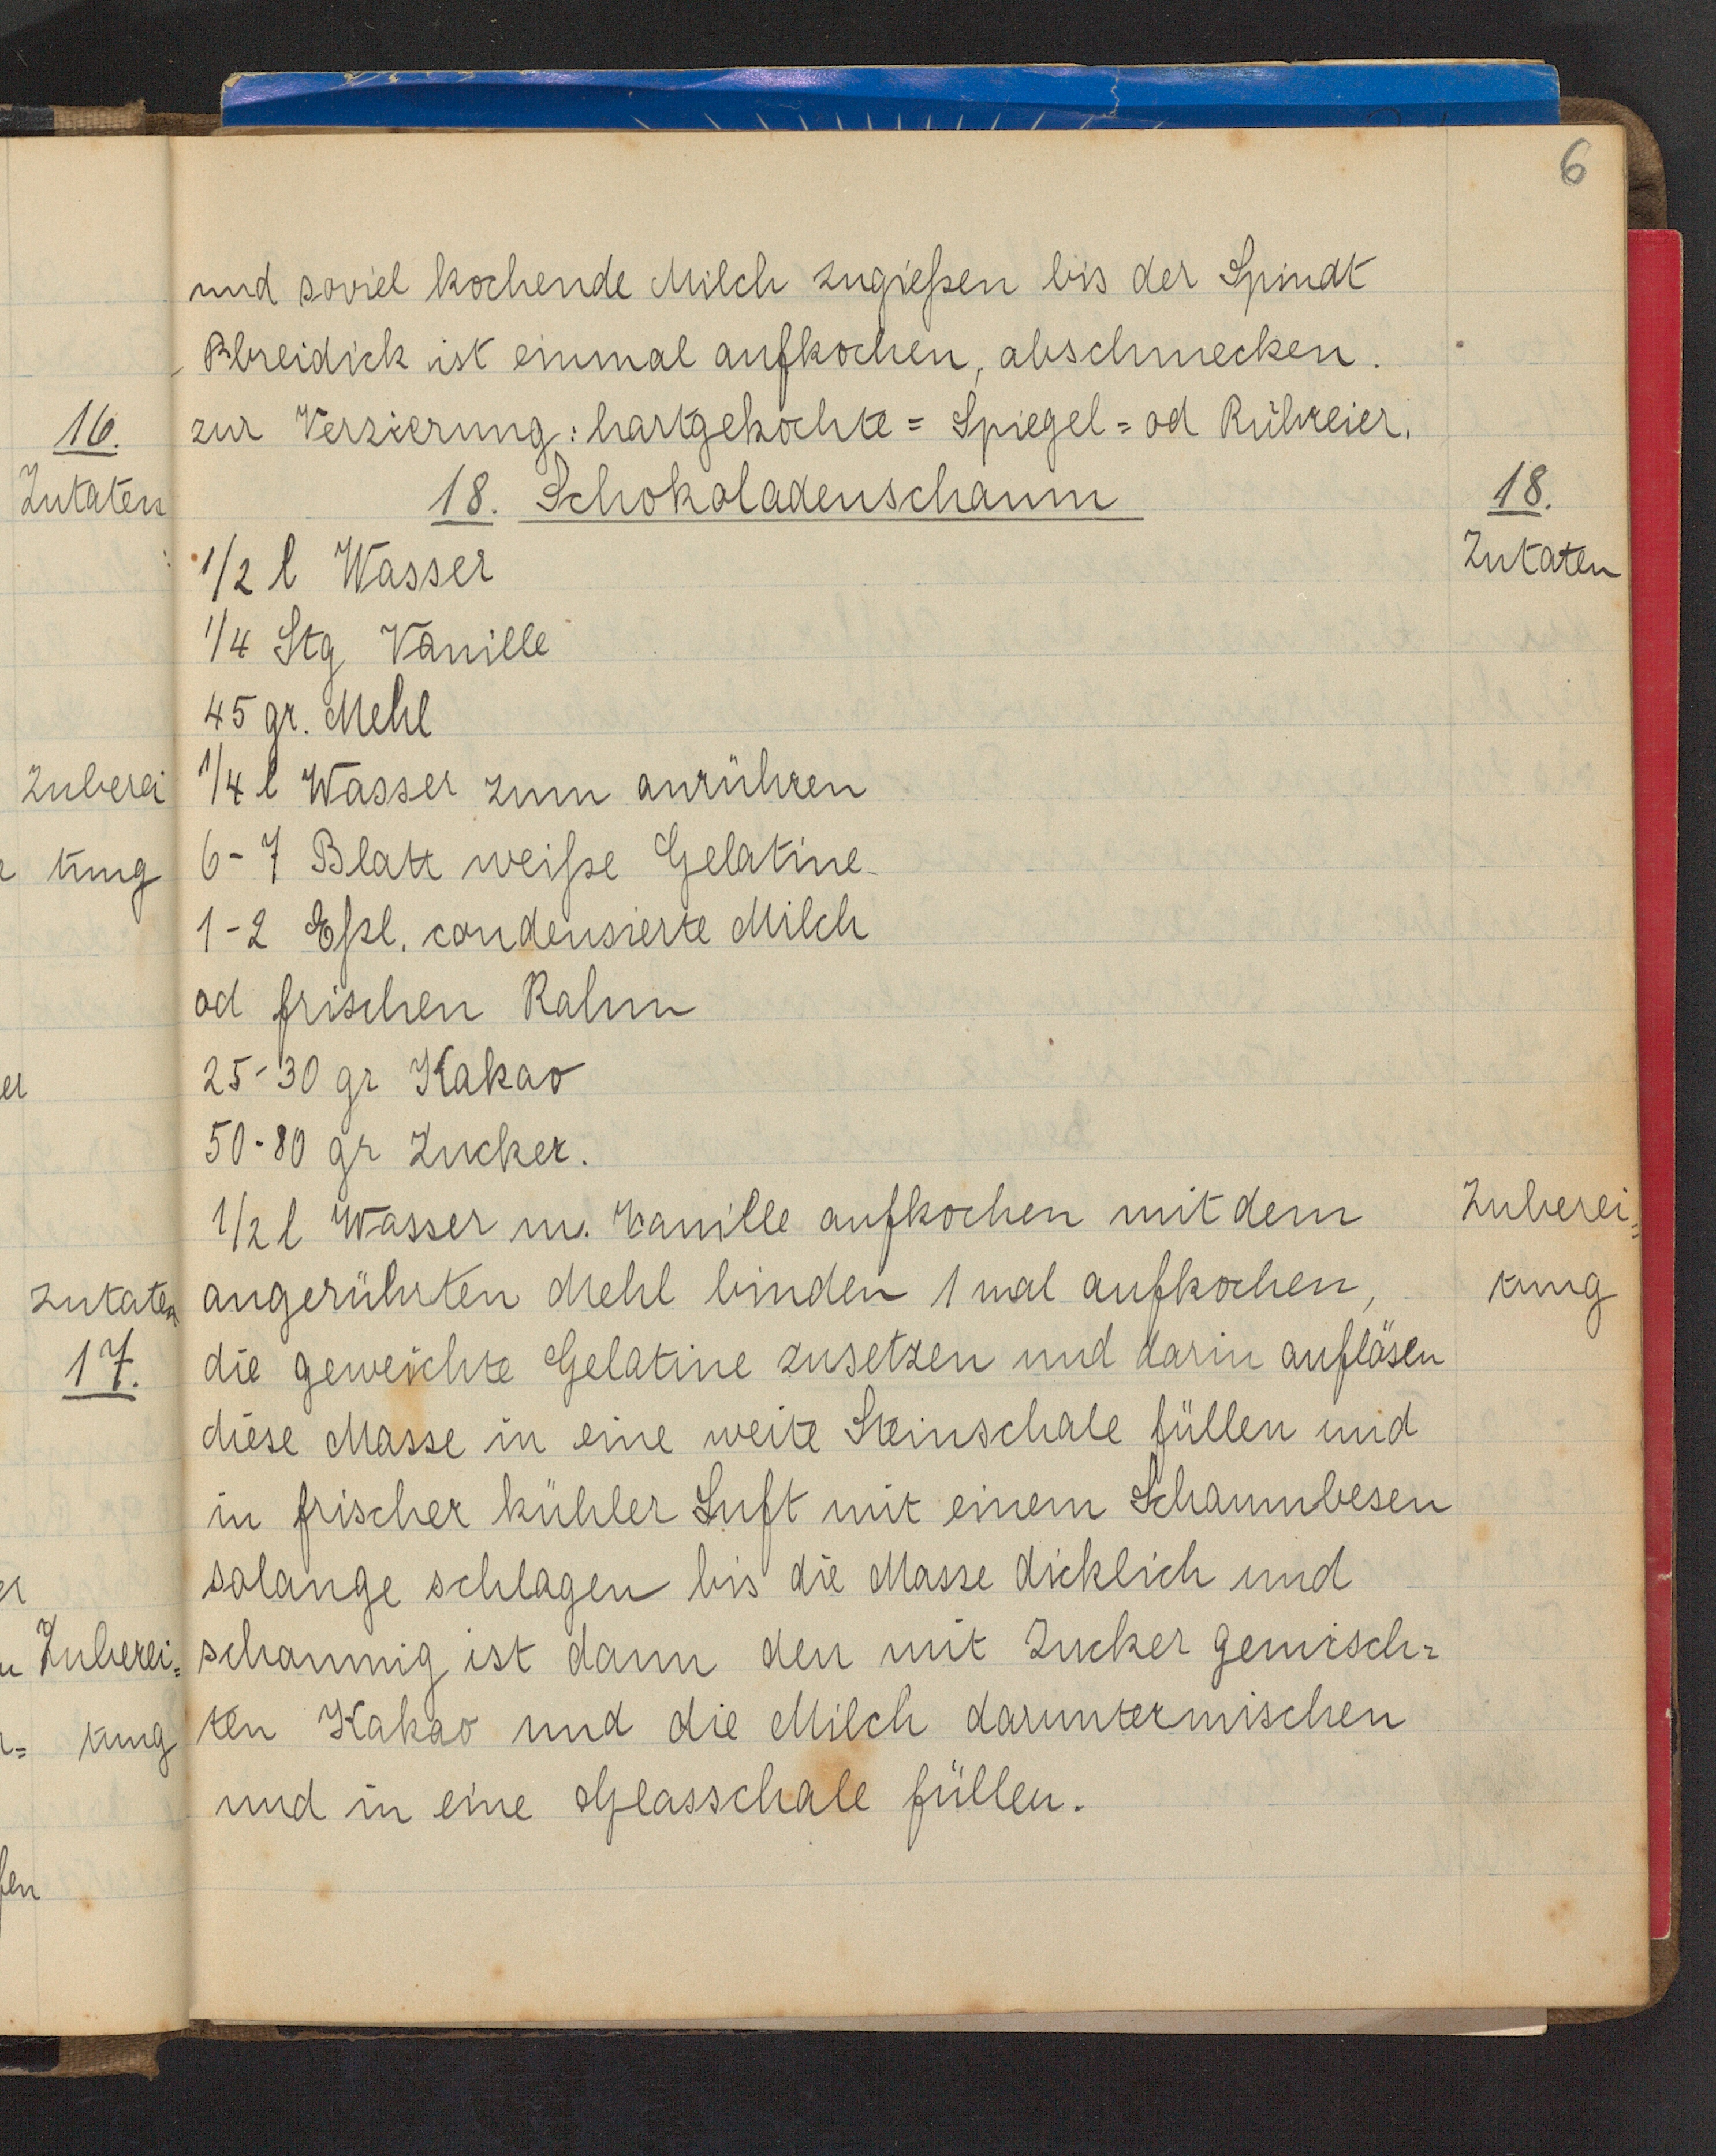 6
und soviel kochende Milch zugießen bis der Spindt
breidick ist einmal aufkochen, abschmecken.
zur Verzierung: hartgekochte = Spiegel = od Rühreier.
18. Schokoladenschaum
18.
Zutaten
1/2 l Wasser
1/4 Stg Vanille
45 gr. Mehl
1/4 l Wasser zum anrühren
6-7 Blatt weiße Gelatine
1-2 Eßl. condensierte Milch
od frischen Rahm
25-30 gr Kakao
50-80 gr Zucker.
Zuberei=
tung
1/2 l Wasser m. Vanille aufkochen mit dem
angerührten Mehl binden 1 mal aufkochen,
die geweichte Gelatine zusetzen und darin auflösen
diese Masse in eine weite Steinschale füllen und
in frischer kühler Luft mit einem Schaumbesen
solange schlagen bis die Masse dicklich und
schaumig ist dann den mit Zucker gemisch=
ten Kakao und die Milch daruntermischen
und in eine Glasschale füllen.
16.
Zutaten
Zuberei
tung
Zutaten
17.
Zuberei=
tung